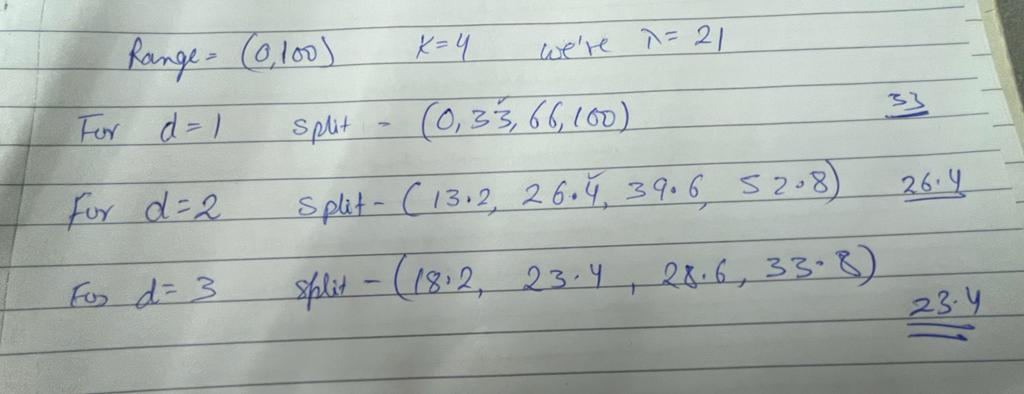 Range = (0,100) K=4 we're λ= 21
For d=1 split - (0, 33, 66, 100) 33
For d=2 split - (13.2, 26.4, 39.6, 52.8) 26.4
For d=3 split - (18.2, 23.4, 28.6, 33.8)
23.4